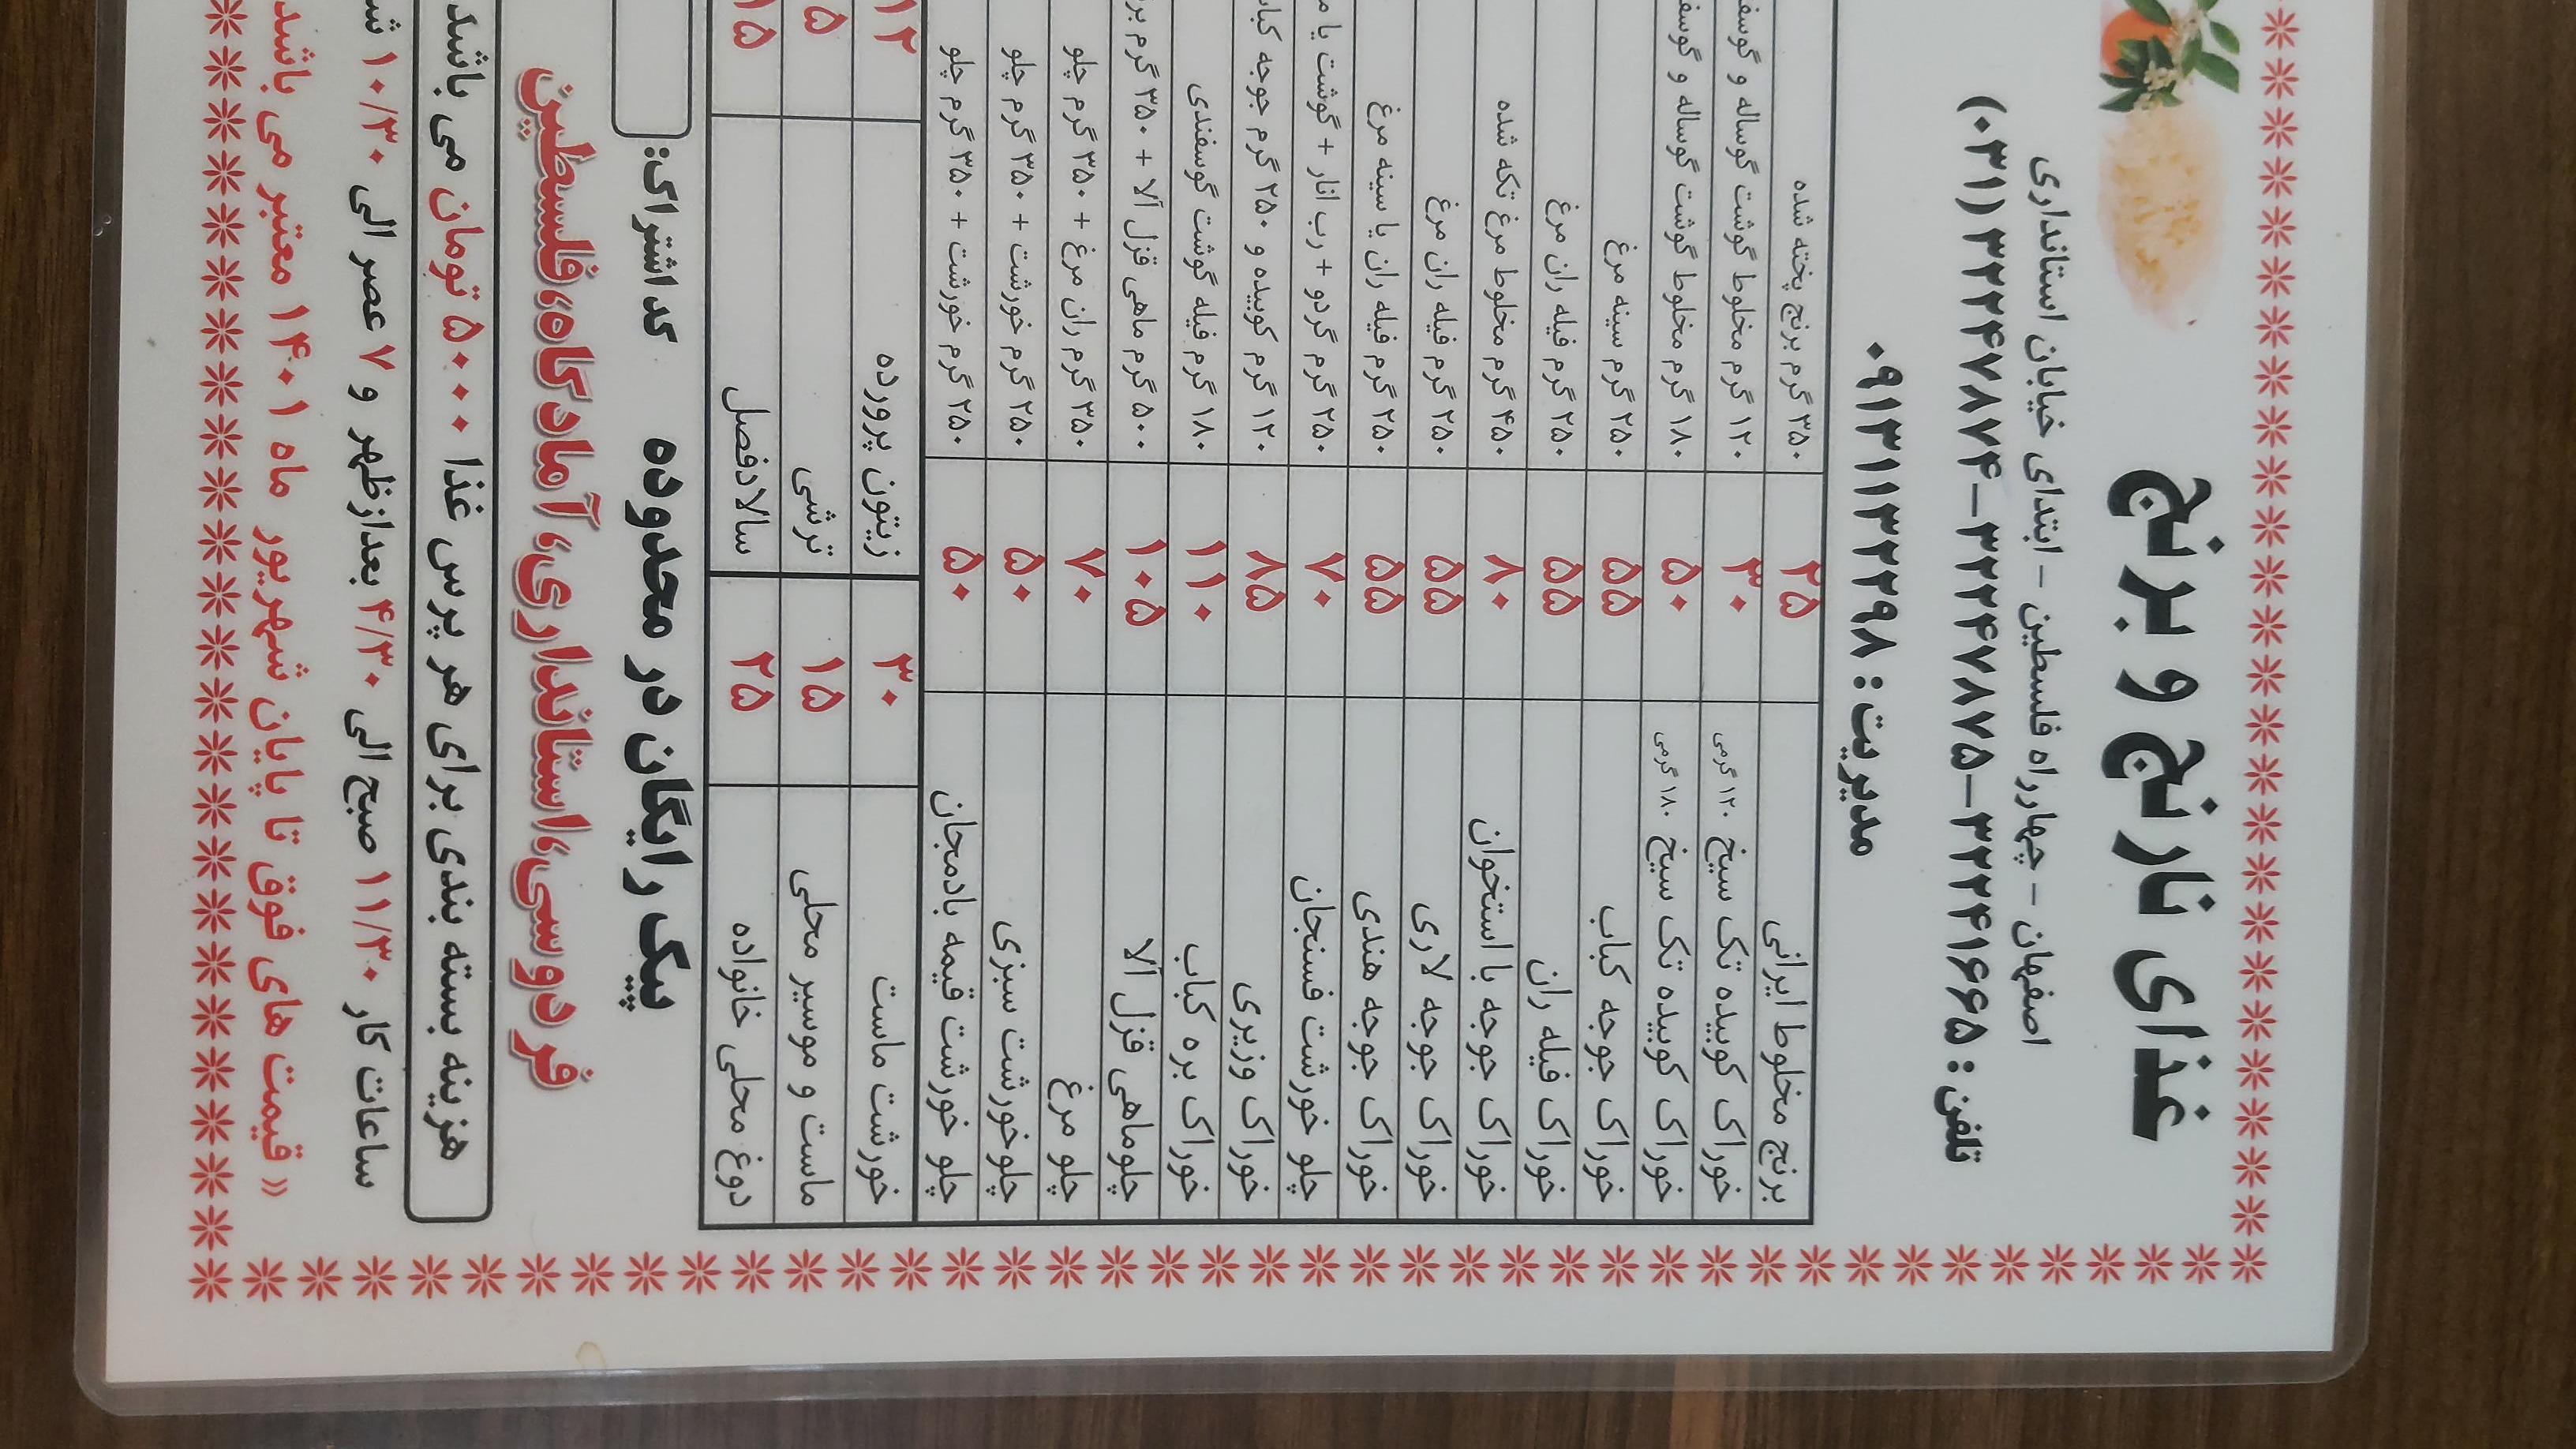 غذای نارنج و برنج
اصفهان - چهارراه فلسطین - ابتدای خیابان استانداری
تلفن: ۳۲۲۴۱۶۶۵-۳۲۲۴۷۸۷۵-۳۲۲۴۷۸۷۴ (۰۳۱)
مدیریت: ۰۹۱۳۱۱۳۲۲۹۸
برنج مخلوط ایرانی ۲۵ ۳۵۰ گرم برنج پخته شده
خوراک کوبیده تک سیخ ۱۲۰ گرمی ۳۰ ۱۲۰ گرم مخلوط گوشت گوساله و
خوراک کوبیده تک سیخ ۱۸۰ گرمی ۵۰ ۱۸۰ گرم مخلوط گوشت گوساله و
خوراک جوجه کباب ۵۵ ۲۵۰ گرم سینه مرغ
خوراک فیله ران ۵۵ ۲۵۰ گرم فیله ران مرغ
خوراک جوجه با استخوان ۸۰ ۴۵۰ گرم مخلوط مرغ تکه شده
خوراک جوجه لاری ۵۵ ۲۵۰ گرم فیله ران مرغ
خوراک جوجه هندی ۵۵ ۲۵۰ گرم فیله ران یا سینه مرغ
چلو خورشت فسنجان ۷۰ ۲۵۰ گرم گردو + رب انار + گوشت یا
خوراک وزیری ۸۵ ۱۲۰ گرم کوبیده و ۲۵۰ گرم جوجه
خوراک بره کباب ۱۱۰ ۱۸۰ گرم فیله گوشت گوسفندی
چلوماهی قزل آلا ۱۰۵ ۵۰۰ گرم ماهی قزل آلا + ۳۵۰ گرم
چلو مرغ ۷۰ ۳۵۰ گرم ران مرغ + ۳۵۰ گرم چلو
چلوخورشت سبزی ۵۰ ۲۵۰ گرم خورشت + ۳۵۰ گرم چلو
چلو خورشت قیمه بادمجان ۵۰ ۲۵۰ گرم خورشت + ۳۵۰ گرم چلو
خورشت ماست ۳۰ زیتون پرورده ۱۲
ماست و موسیر محلی ۱۵ ترشی ۵
دوغ محلی خانواده ۲۵ سالادفصل ۱۵
پیک رایگان در محدوده کد اشتراک:
فردوسی، استانداری، آمادگاه، فلسطین
هزینه بسته بندی برای هر پرس غذا ۵۰۰۰ تومان می باشد
ساعات کار ۱۱/۳۰ صبح الی ۴/۳۰ بعدازظهر و ۷ عصر الی ۱۰/۳۰
« قیمت های فوق تا پایان شهریور ماه ۱۴۰۱ معتبر می باشد